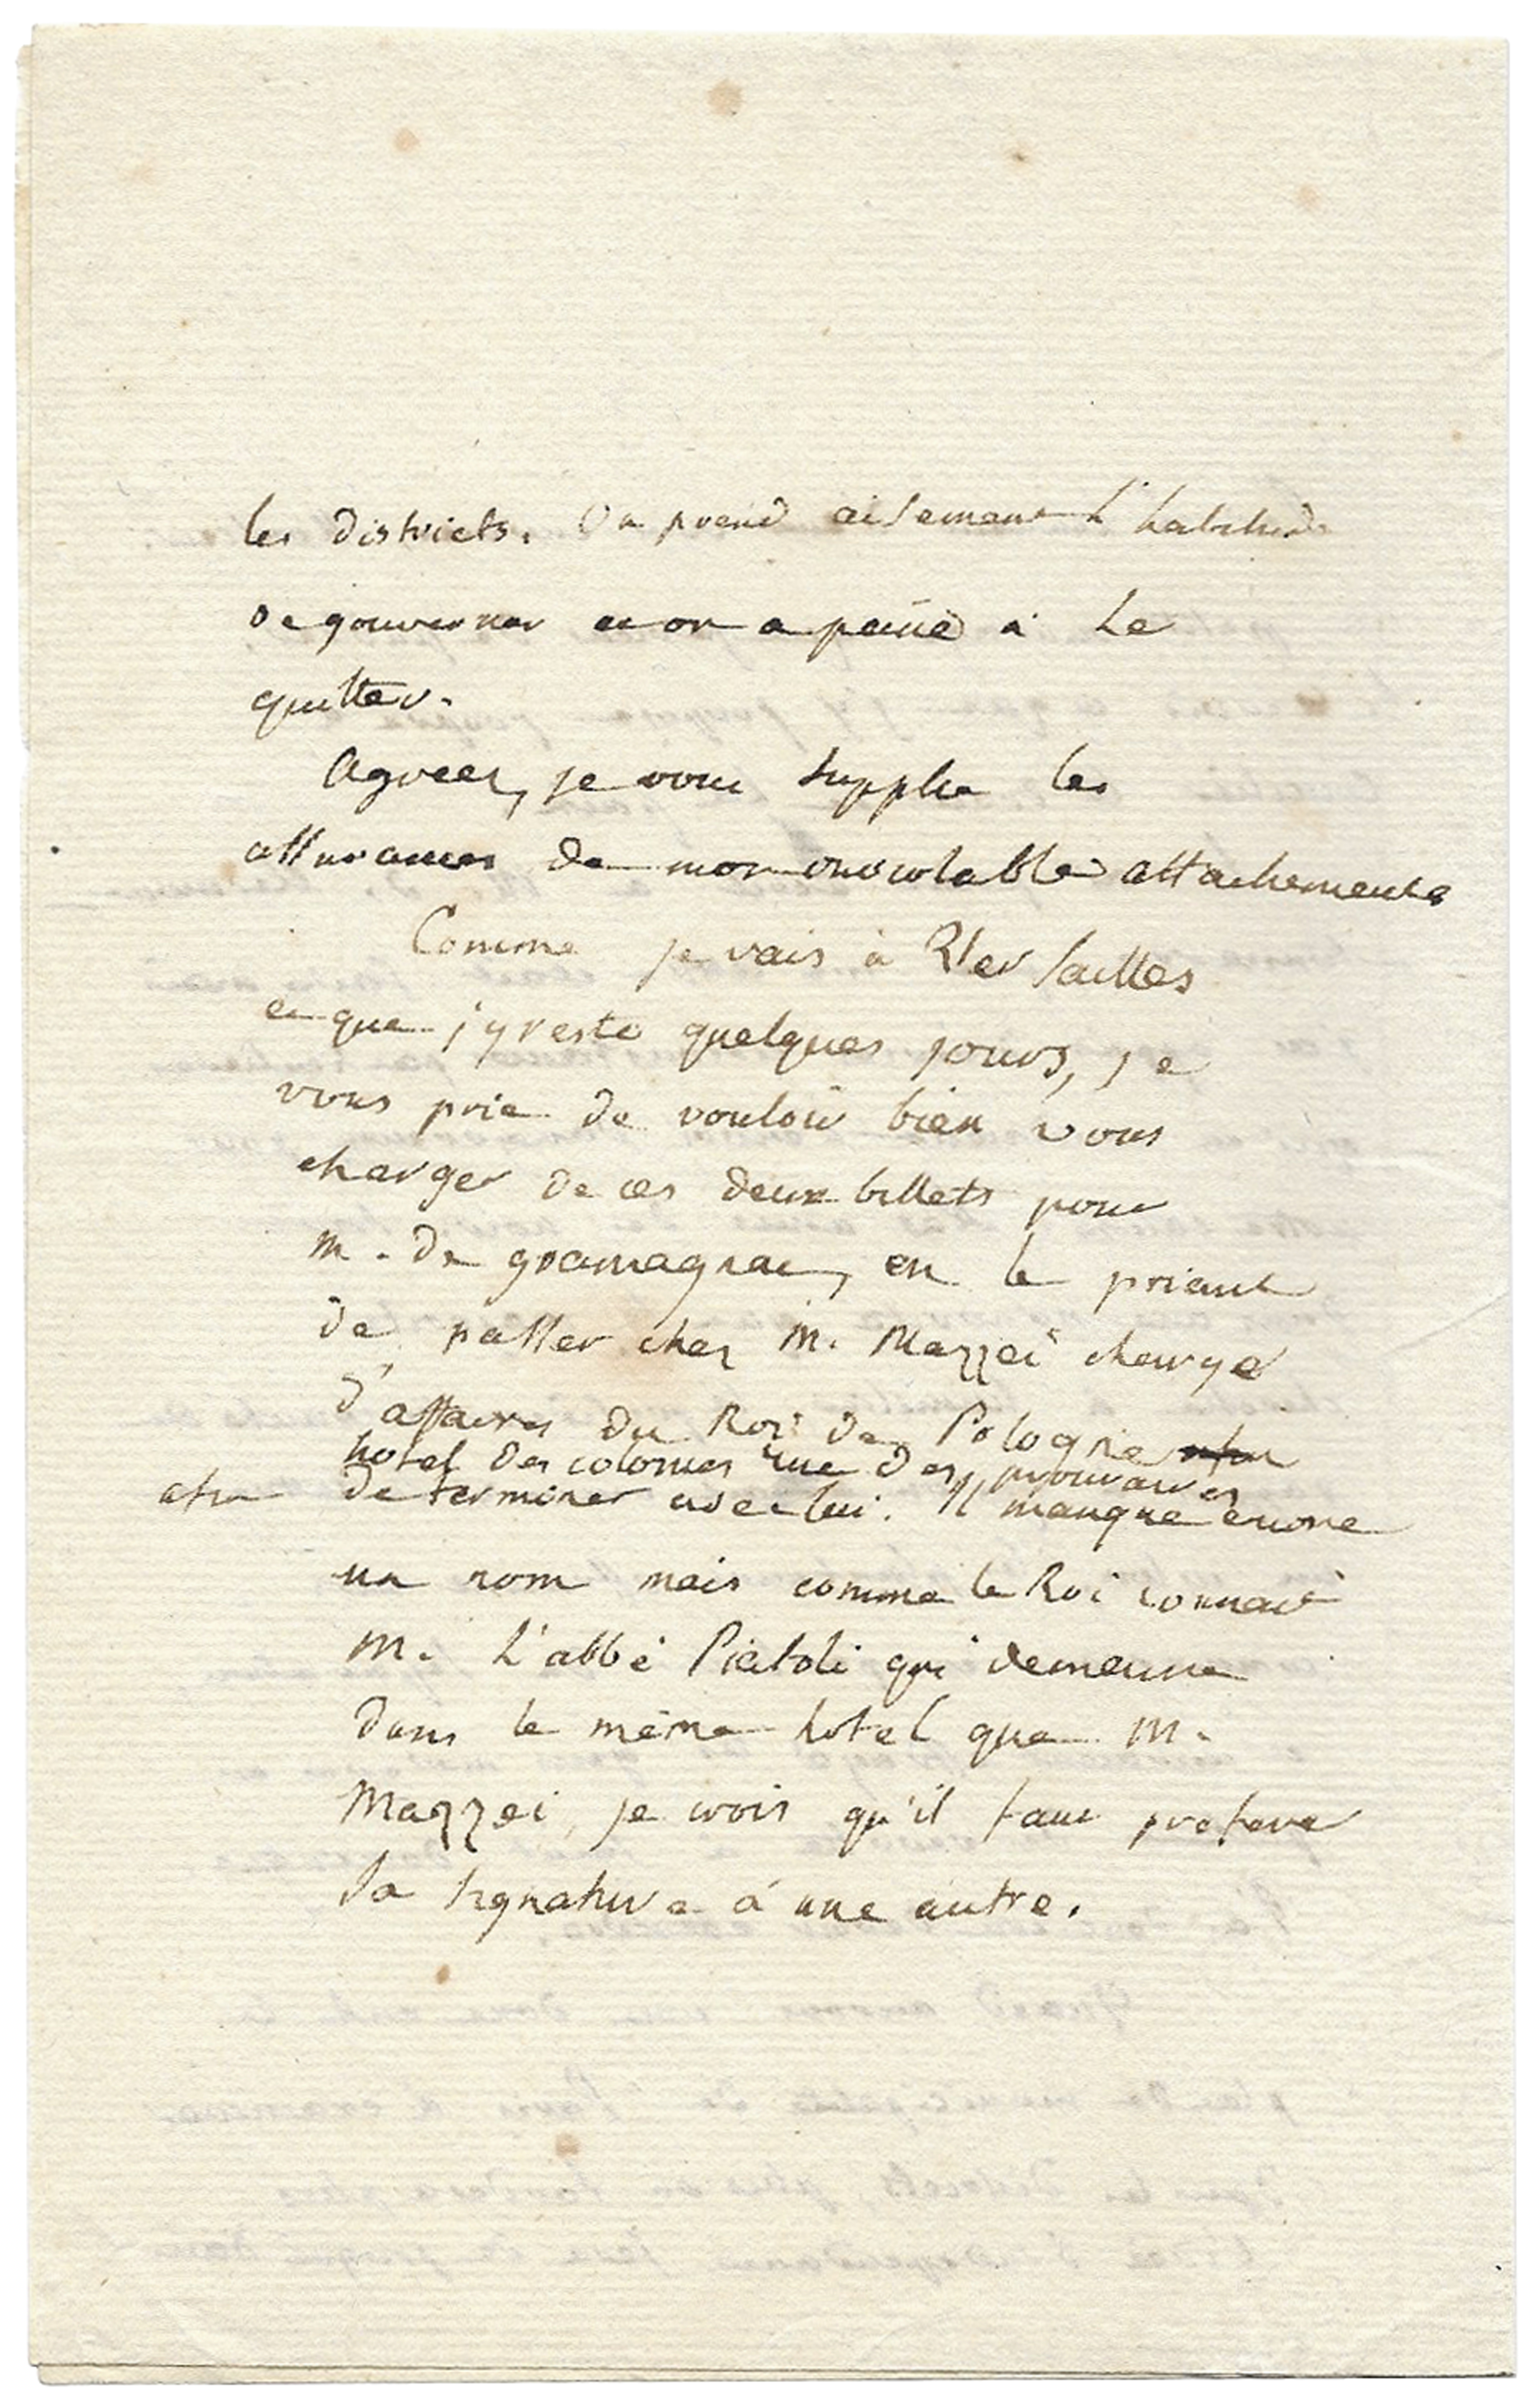 les districts. On prend aisement l'habitude
de gouverner et on a peine à le
quitter.
Agreez, je vous supplie les
assurances de mon inviolable attachement
Comme je vais à Versailles
et que j'y reste quelques jours, je
vous prie de vouloir bien vous
charger de ces deux billets pour
m. de gramagnac, en le priant
de passer chez M. Mazzei chargé
d'affaires du Roi de Pologne
hotel des colonies rue des prouvaires
afin de terminer avec lui. Il manque encore
un nom mais comme le Roi connait
M. l'abbé Piatoli qui demeure
dans le même hotel que M.
Mazzei, je crois qu'il faut preferer
sa signature à une autre.